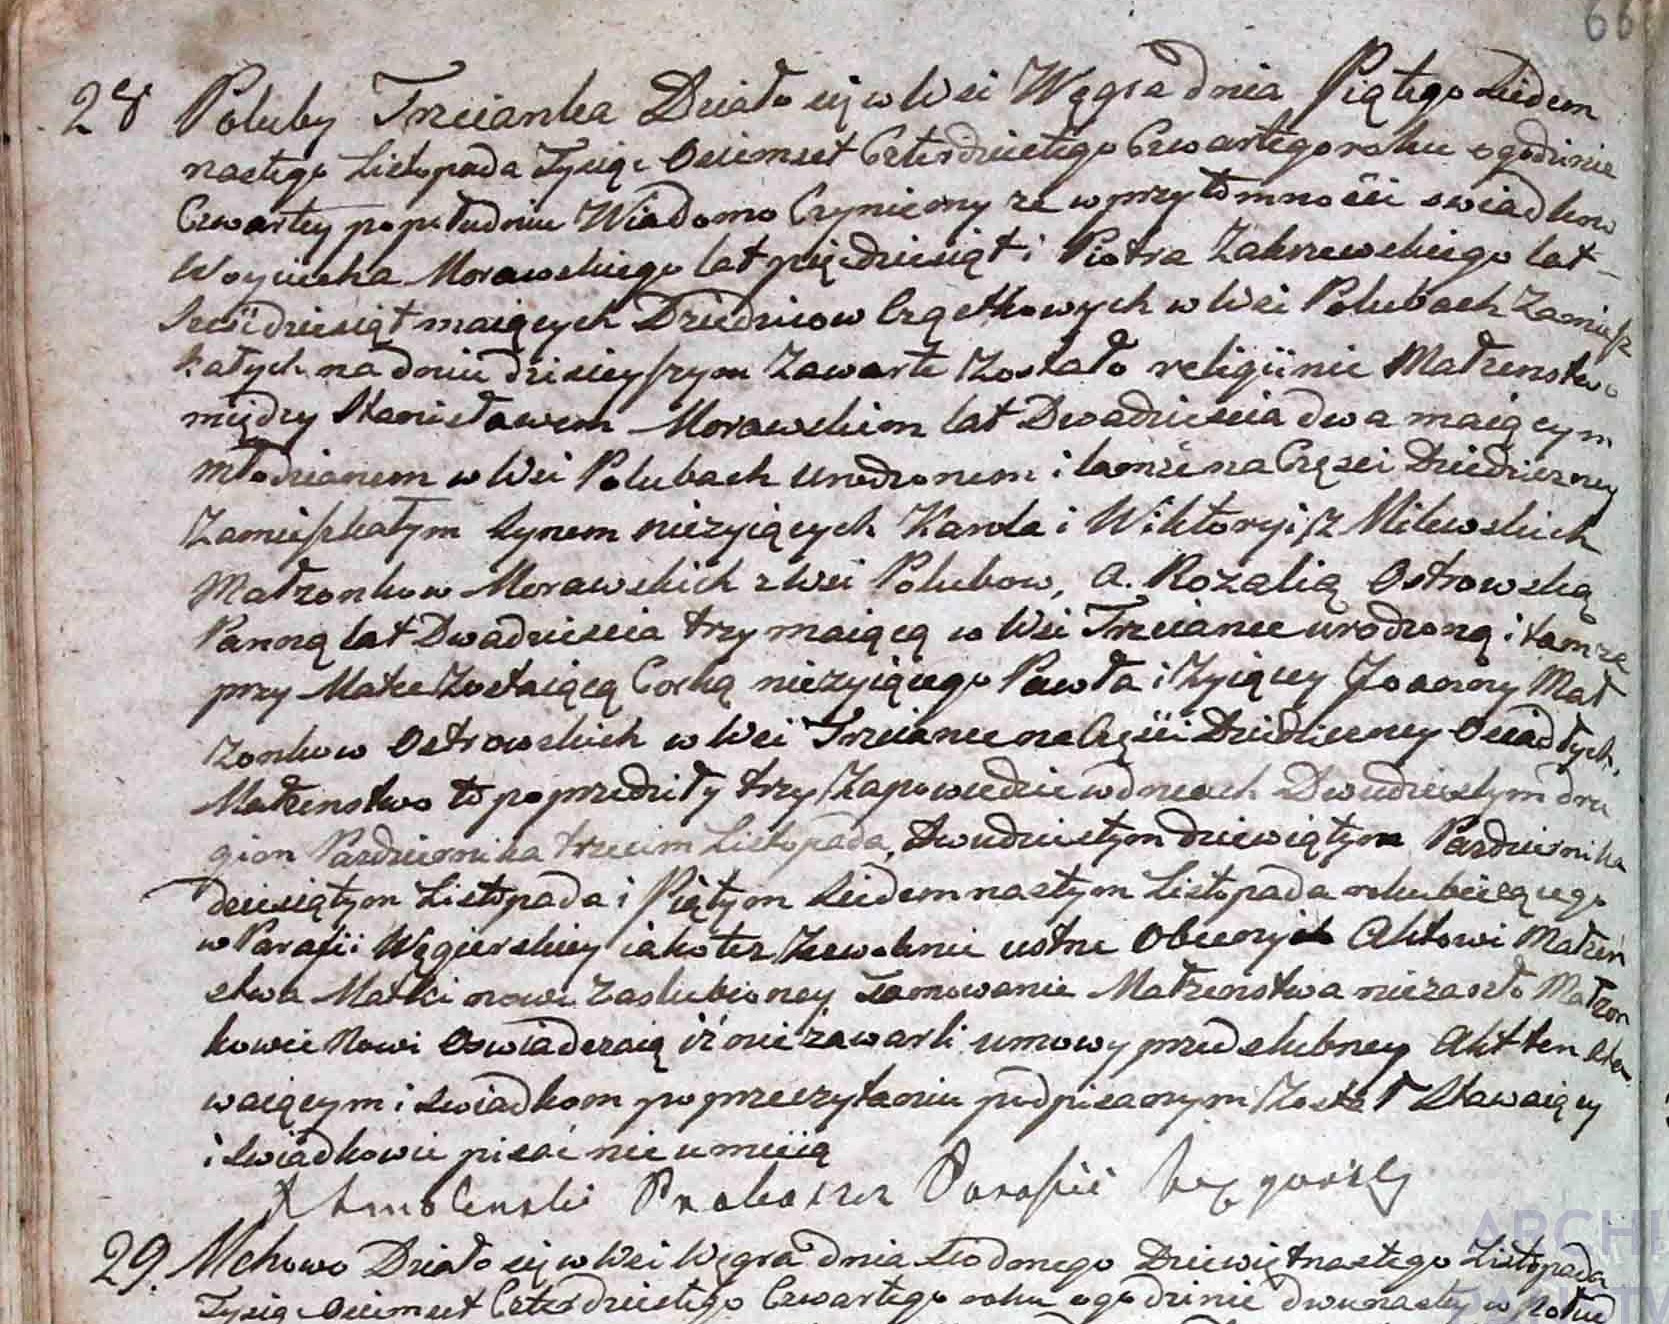 66
28 Poluby Trzcianka Działo się w Wsi Węgra dnia Piątego Siedem
nastego Listopada Tysiąc Osiemset Czterdziestego Czwartego roku o godzinie
Czwartey popołudniu Wiadomo Czyniemy ze w przytomności swiadkow
Woyciecha Morawskiego lat pięcdziesiąt i Piotra Zakrzewskiego lat
Sześćdziesiąt maiących Dziedzicow Cząstkowych w Wsi Polubach Zamiesz
kałych na dniu dzisieyszym Zawarte Zostało religiinie Małzenstwo
między Stanisławem Morawskim lat Dwadziescia dwa maiącym
młodzianem w Wsi Polubach urodzonem i tamże na Części Dziedziczney
Zamieszkałym Synem nieżyiących Karola i Wiktoryi z Milewskich
Małzonkow Morawskich z Wsi Polubow, a. Rozalią Ostrowską
Panną lat Dwadziescia trzy maiącą w Wsi Trzciance urodzoną i tamże
przy Matce Zostaiącą Corką nieżyiącego Pawła i Żyiący Joanny Mał
zonkow Ostrowskich w Wsi Trzciance na Części Dziedziczney Osiadłych.
Małzenstwo to poprzedziły trzy Zapowiedzie w dniach Dwudziestym dru
giem Pazdziernika trzecim Listopada, dwudziestym dziewiątym Pazdziernika
dziesiątym Listopada i Piątym Siedemnastym Listopada roku bieżącego
w Parafii Węgierskiey iako tez Zezwolenie ustne Obecnych Aktowi Małzeń
stwa Matki nowo Zaslubioney Tamowanie Małzenstwa niezaszło Małzon
kowie Nowi Oswiadczaią iż nie zawarli umowy przedslubney Akt ten Sta
waiącym i Swiadkom po przeczytaniu podpisanym Został Stawaiący
i Swiadkowie pisać nie umieią
Proboszcz Parafii
29. Mchowo Działo się w Wsi Węgra dnia Siodmego Dziewiętnastego Listopada
Tysiąc Osiemset Czterdziestego Czwartego roku o godzinie dwunasty w Połud
ARCHI